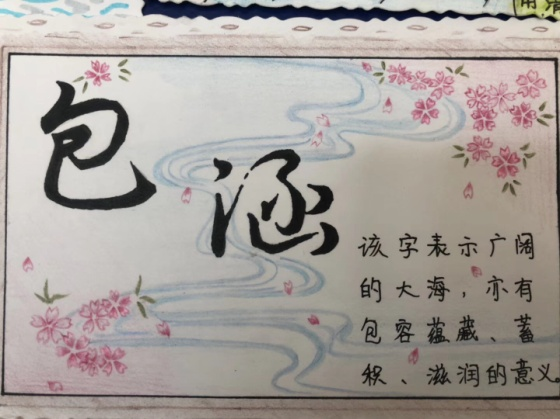 包涵
该字表示广阔
的大海，亦有
包容蕴藏、蓄
积、滋润的意义。